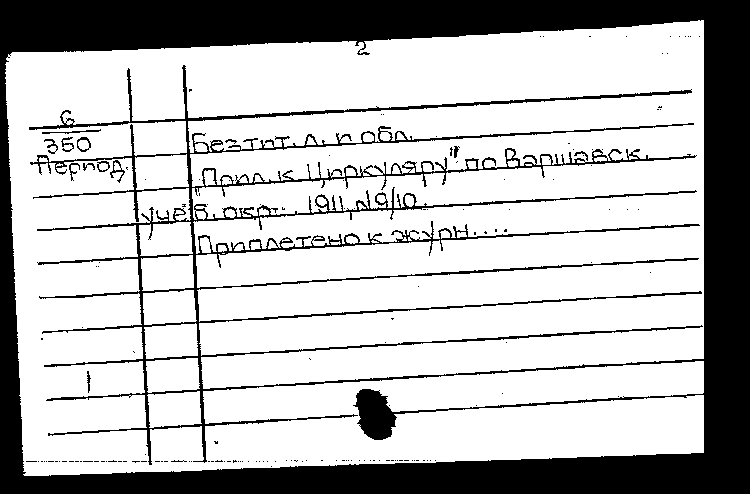 2
6
350
Период.
Без тит. л. и обл.
"Прил. к Циркуляру" по Варшавск.
учеб. окр. 1911, №9/10.
Приплетено к журн....
1